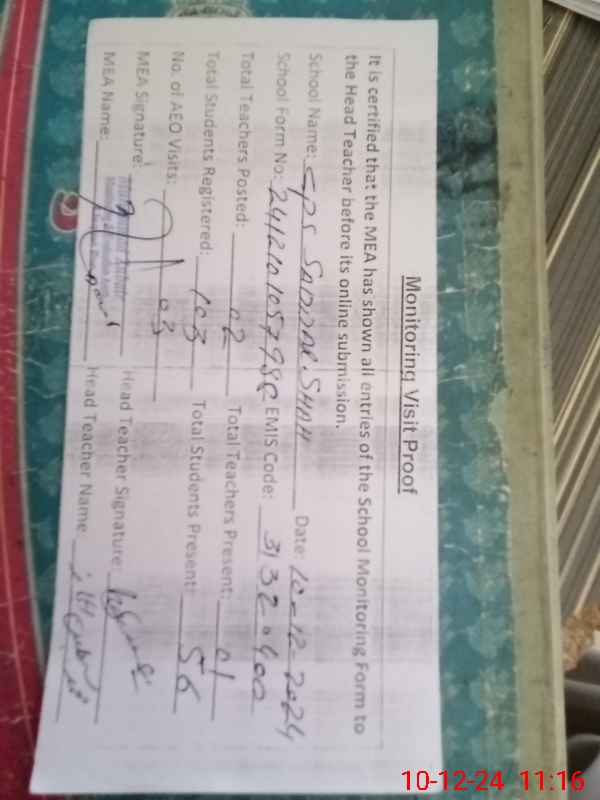 Monitoring Visit Proof
It is certified that the MEA has shown all entries of the School Monitoring Form to
the Head Teacher before its online submission.
School Name: GPS SADIQUE SHAH Date: 10-12-2024
School Form No: EMIS Code: 31320400
Total Teachers Posted: 02 Total Teachers Present: 01
Total Students Registered: 103 Total Students Present: 56
No. of AEO Visits: 03
MEA Signature: Head Teacher Signature:
MEA Name: Head Teacher Name:
10-12-24 11:16